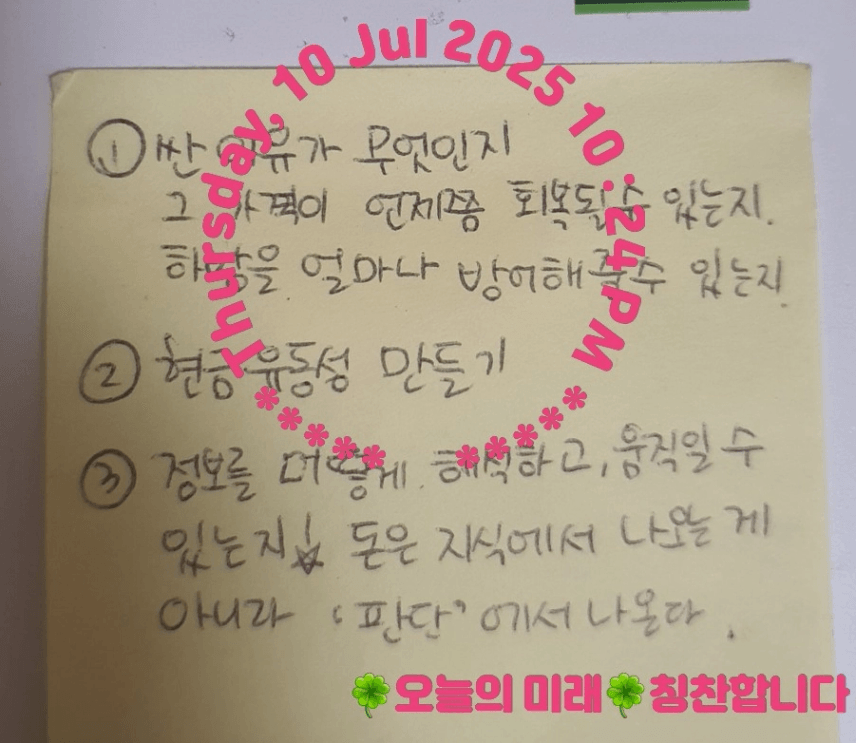 Thursday, 10 Jul 2025 10:24PM
*****  *****
① 싼 이유가 무엇인지
그 가격이 언제쯤 회복될수 있는지.
하락을 얼마나 방어해 줄수 있는지.
② 현금유동성 만들기
③ 정보를 어떻게 해석하고, 움직일 수
있는지☆ 돈은 지식에서 나오는 게
아니라 '판단'에서 나온다.
🍀오늘의 미래🍀칭찬합니다